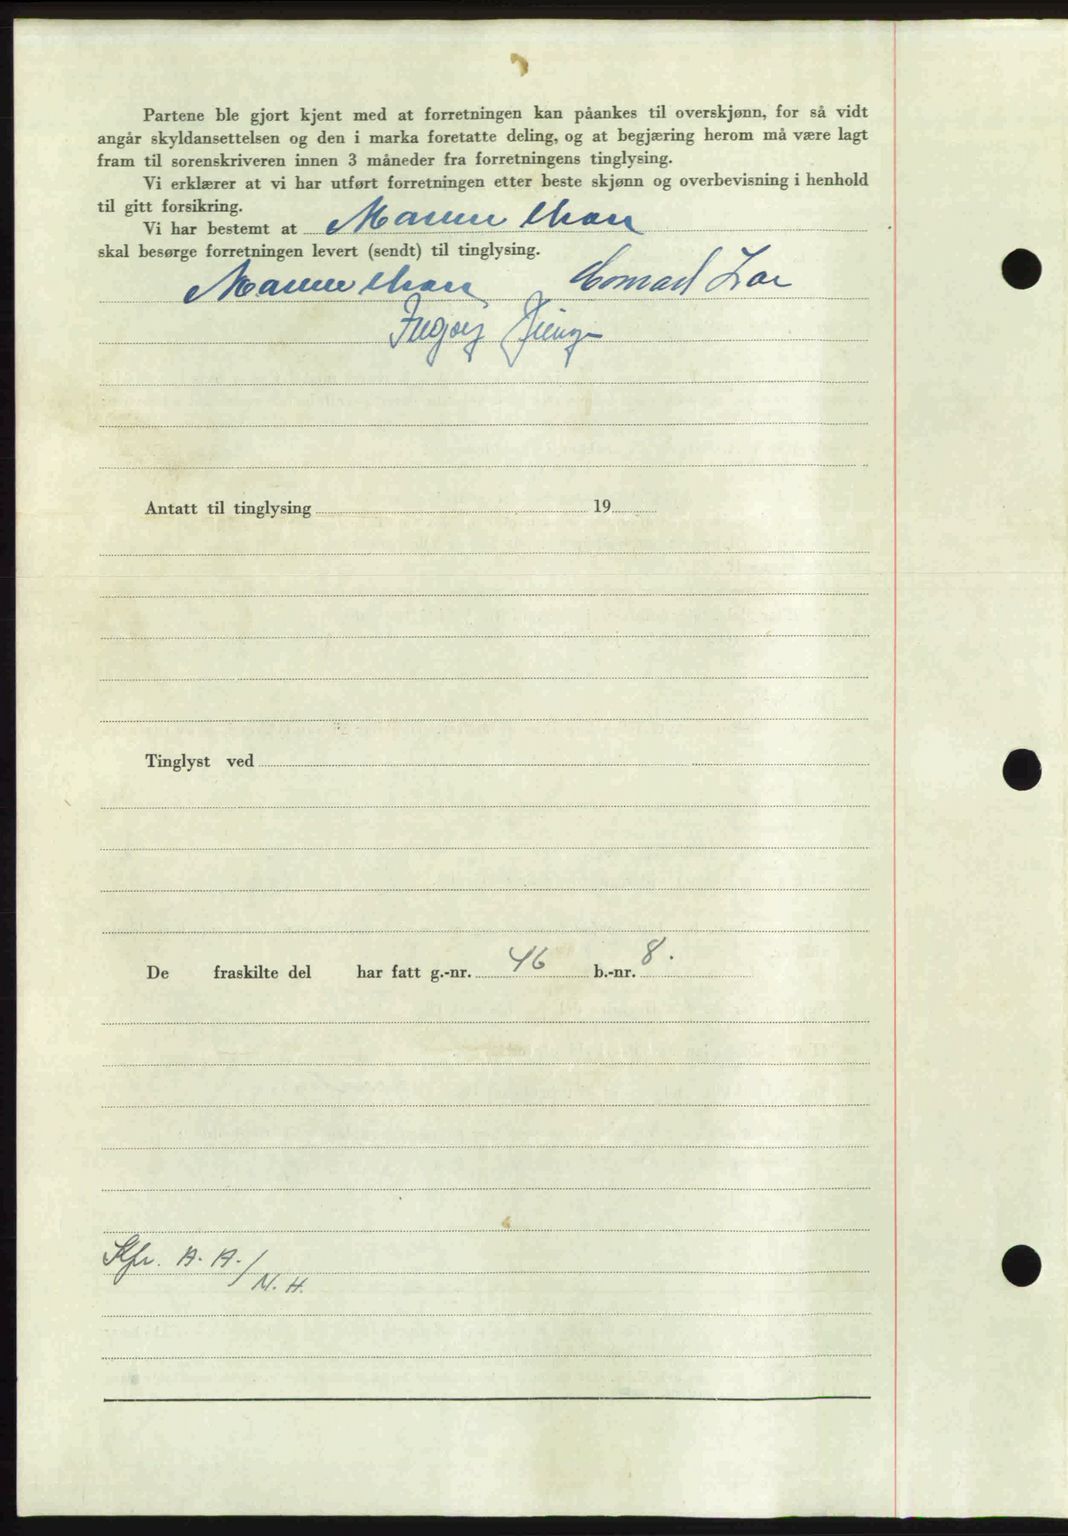 Partene ble gjort kjent med at forretningen kan påankes til overskjønn, for så vidt
angår skyldansettelsen og den i marka foretatte deling, og at begjæring herom må være lagt
fram til sorenskriveren innen 3 måneder fra forretningens tinglysing.
Vi erklærer at vi har utført forretningen etter beste skjønn og overbevisning i henhold
til gitt forsikring.
Vi har bestemt at
skal besørge forretningen levert (sendt) til tinglysing.
Antatt til tinglysing 19
Tinglyst ved
De fraskilte del har fatt g.-nr. 46 b.-nr. 8.
A. A. / N. H.